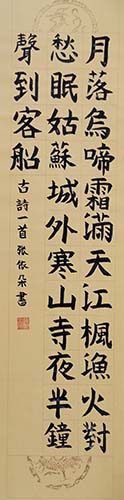 月落烏啼霜滿天江楓漁火對
愁眠姑蘇城外寒山寺夜半鐘
聲到客船
古詩一首張依朵書